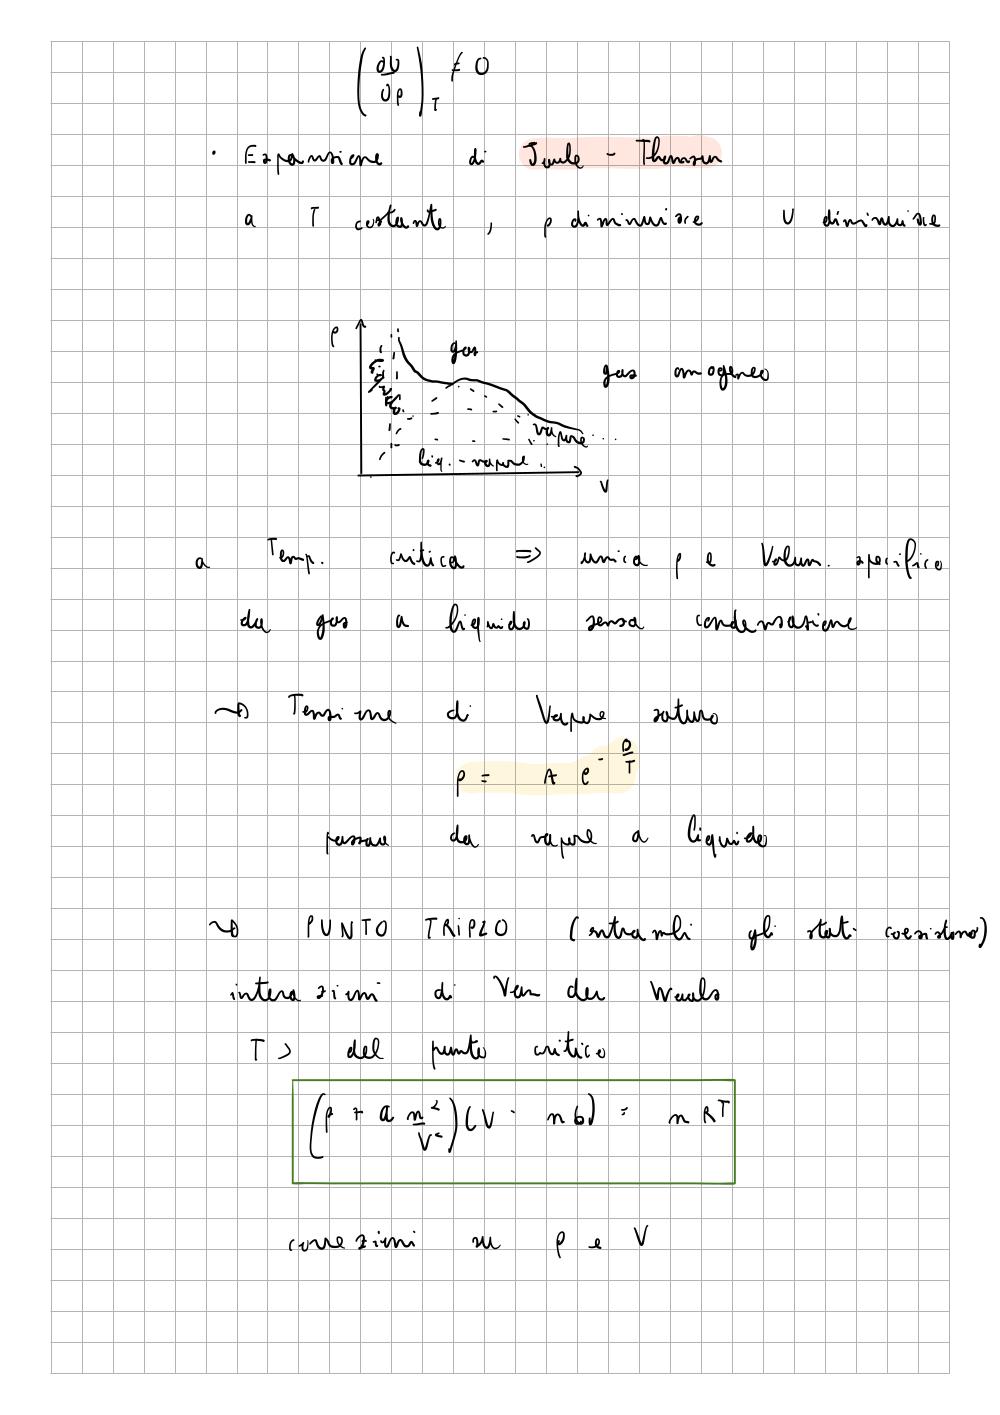 (∂U/∂p)_T ≠ 0
· Espansione di Joule - Thomson
a T costante , p diminuisce U diminuisce
p
gas
gas omogeneo
liquido
vapore ...
liq. - vapore
V
a Temp. critica => unica p e Volum. specifico
da gas a liquido senza condensazione
~> Tensione di Vapore saturo
p = A e^(-B/T)
passare da vapore a liquido
~> PUNTO TRIPLO (entrambi gli stati coesistono)
interazioni di Van der Waals
T > del punto critico
(p + a n²/V²)(V - nb) = nRT
correzioni su p e V